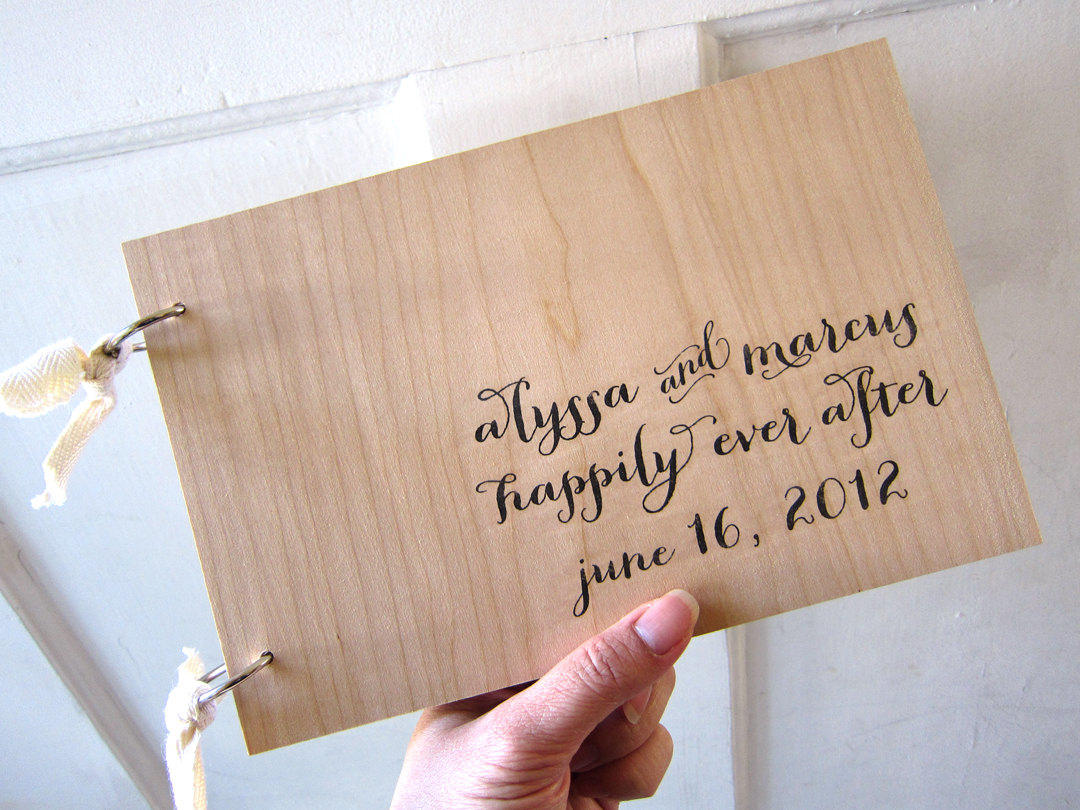 alyssa and marcus
happily ever after
june 16, 2012